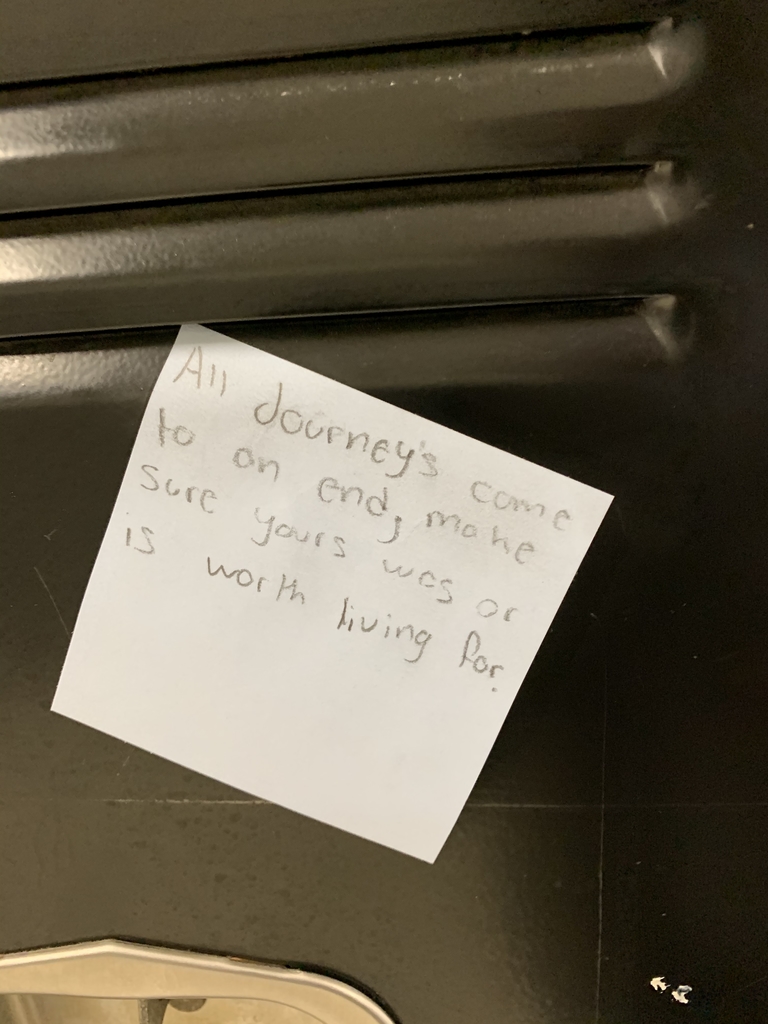 All Journey's come
to an end, make
sure yours was or
is worth living for.